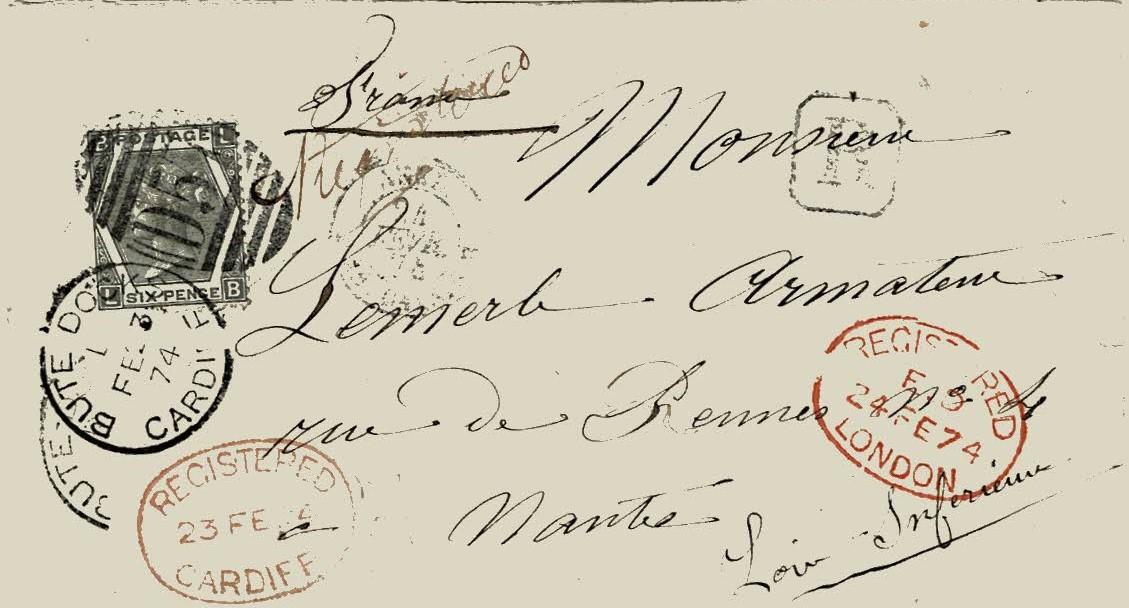 France
Monsieur
R
Lemerle Armateur
rue de Rennes No 4
a Nantes
Loire Inferieure
POSTAGE L
MD5
SIX PENCE B
BUTE DO
FE
74
CARDIFF
BUTE
REGISTERED
23 FE 74
CARDIFF
REGISTERED
24 FE 74
LONDON